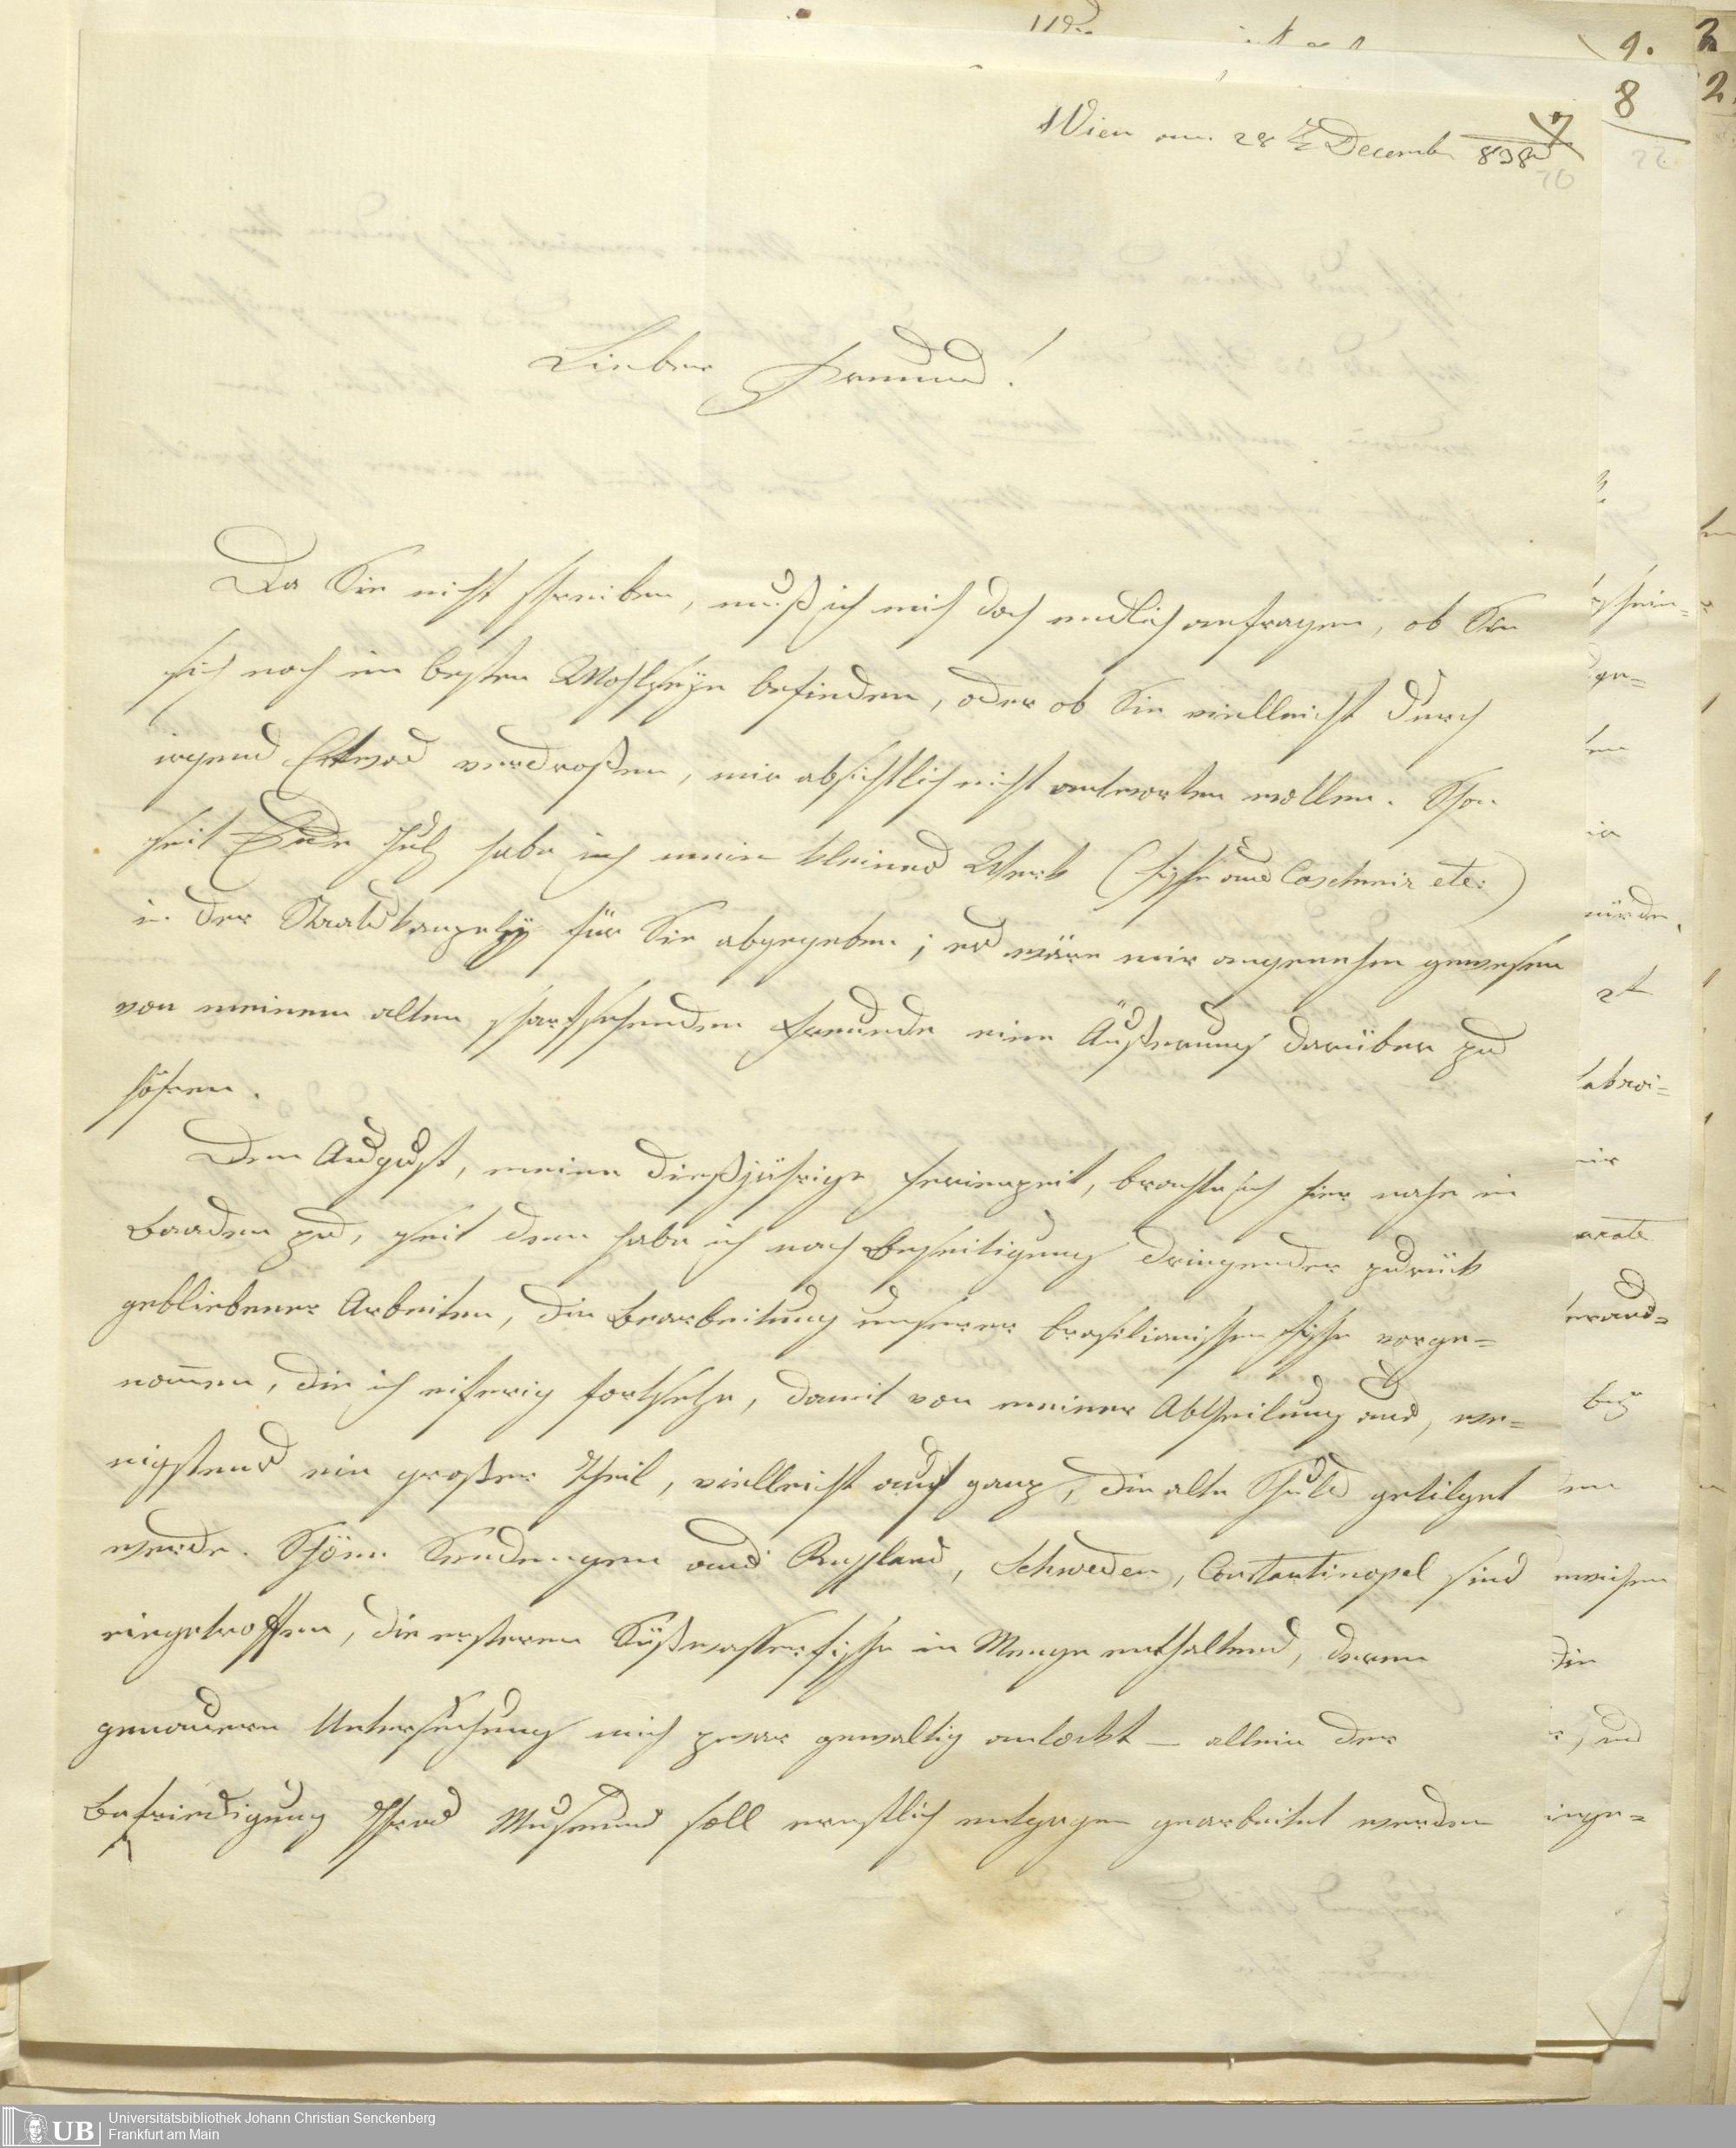 Wien am 28 t Decemb 838
7
8
Lieber Freund!
Da Sie nicht schreiben, muß ich mich doch endlich anfragen, ob Sie
sich noch im besten Wohlseyn befinden, oder ob Sie vielleicht durch
irgend Etwas verdroßen, mir absichtlich nicht antworten wollen. Schon
seit Ende July habe ich mein kleines Werk (Fische aus Caschmir etc:)
in der Staatskanzley für Sie abgegeben; es wäre mir angenehm gewesen
von meinem alten scharfsehenden Freunde eine Äußerung darüber zu
hören.
Den August, meine dießjährige Ferienzeit, brachte ich hier nahe in
Baaden zu, seit dem habe ich nach Beseitigung dringender zurück
gebliebener Arbeiten, die Bearbeitung unserer brasilianischen Fische vorge=
nom̅en, die ich eiferig fortsetze, damit von meiner Abtheilung aus, we=
nigstens ein großer Theil, vielleicht auch ganz, die alte Schuld getilget
werde. Schöne Sendungen aus Russland, Schweden, Constantinopel sind
eingetroffen, die ersteren Süßwasserfische in Menge enthaltend, deren
genauere Untersuchung mich zwar gewaltig anlockt – allein der
Befriedigung Ihres Museums soll ernstlich entgegen gearbeitet werden
UB
Universitätsbibliothek Johann Christian Senckenberg
Frankfurt am Main